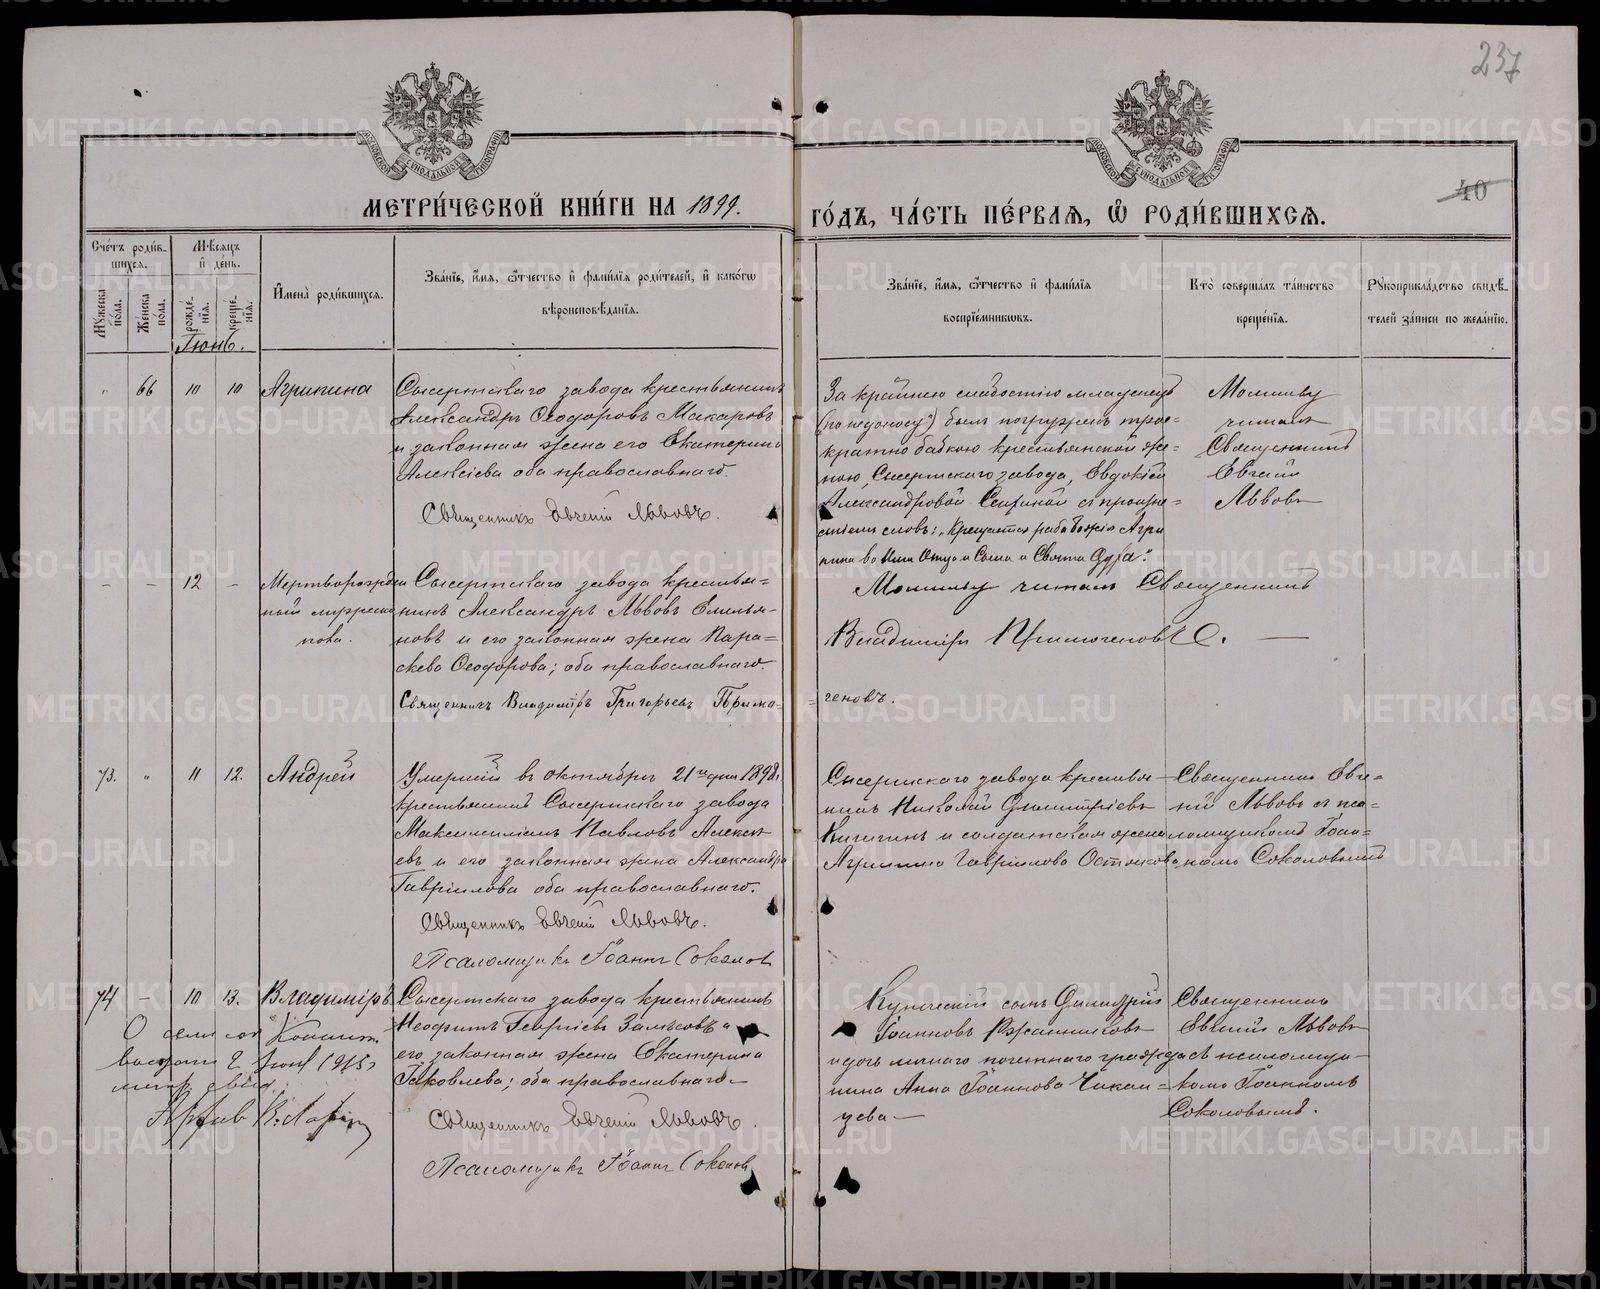 237
40
МОСКОВСКОЙ СѴНОДАЛЬНОЙ ТИПОГРАФІИ
МОСКОВСКОЙ СѴНОДАЛЬНОЙ ТИПОГРАФІИ
МЕТРИ́ЧЕСКОЙ КНИ́ГИ НА 1899.
ГО́ДЪ, ЧА́СТЬ ПЕ́РВАЯ, Ѽ РОДИ́ВШИХСЯ.
Сче́тъ роди́в-
шихся.
Мѣ́сяцъ
и҆ де́нь.
Мꙋ́жеска по́ла.
Же́нска по́ла.
рожде́-нїя.
креще́-нїя.
И҆мена̀ роди́вшихся.
Зва́нїе, и҆́мя, ѻ҆́тчество и҆ фами́лїя роди́телей, и҆ како́гѡ
вѣроисповѣ́данїя.
Зва́нїе, и҆́мя, ѻ҆́тчество и҆ фами́лїя
воспрїе́мникѡвъ.
Кто̀ соверша́лъ та́инство
креще́нїя.
Рꙋкоприкла́дство свидѣ́-
телей за́писи по жела́нїю.
Іюнь.
" 66 10 10 Агрипина
Сысертскаго завода крестьянинъ
Александръ Ѳеодоровъ Макаровъ
и законная жена его Екатерина
Алексіева оба православнаго.
Священникъ Евгеній Львовъ.
За крайнею слабостію младенецъ
(по недоносу) былъ погруженъ трое-
кратно бабкою крестьянской же-
ною, Сысертскаго завода, Евдокіей
Александровой с произне-
сніемъ словъ: "Крещается раба Божія Агри
пина во имя Отца и Сына и Святаго Духа".
Молитву
читалъ
Священникъ
Евгеній
Львовъ
- - 12 - Мертворожден
ный мужеска
пола.
Сысертскаго завода крестья-
нинъ Александръ Львовъ Емелья-
новъ и его законная жена Пара-
скева Ѳеодорова; оба православнаго.
Священникъ Владиміръ Григорьевъ Примо-
Молитву читалъ Священникъ
Владиміръ Примогеновъ.
геновъ.
73. " 11 12. Андрей
Умершій въ октябрѣ 21го дня 1898 г.
крестьянинъ Сысертскаго завода
Максимиліанъ Павловъ Алексѣ
евъ и его законная жена Александра
Гавріилова оба православнаго.
Священникъ Евгеній Львовъ.
Псаломщикъ Іоаннъ Соколовъ
Сысертскаго завода крестья-
нинъ Николай Димитріевъ
и солдатская жена
Агрипина Гавріилова
Священникъ Евге-
ній Львовъ съ пса-
ломщикомъ Іоан-
номъ Соколовымъ
74 - 10 13. Владиміръ
Сысертскаго завода крестьянинъ
Неофитъ Георгіевъ и
его законная жена Екатерина
Іаковлева; оба православнаго.
Священникъ Евгеній Львовъ.
Псаломщикъ Іоаннъ Соколовъ
Купеческій сынъ Димитрій
Іоанновъ
и дочь личнаго почетнаго гражда-
нина Анна Іоаннова Чикан-
цева
Священникъ
Евгеній Львовъ
съ псаломщи-
комъ Іоанномъ
Соколовымъ.
О семъ
2 1915
METRIKI.GASO-URAL.RU